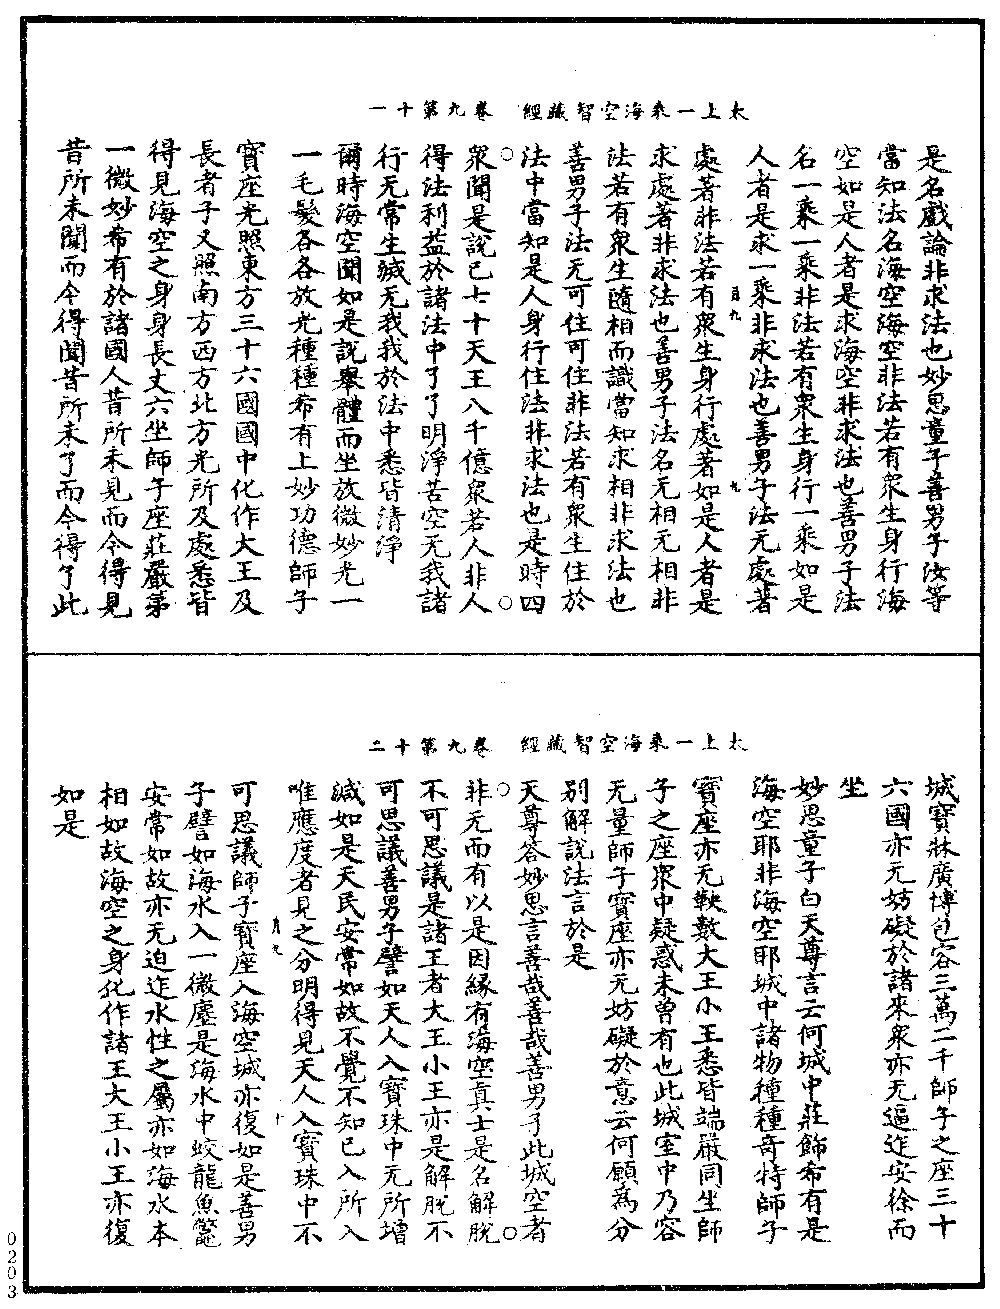 太上一乘海空智藏經　卷九第十一
是名戲論非求法也妙思童子善男子汝等
當知法名海空海空非法若有衆生身行海
空如是人者是求海空非求法也善男子法
名一乘一乘非法若有衆生身行一乘如是
人者是求一乘非求法也善男子法无處著
處著非法若有衆生身行處著如是人者是
求處著非求法也善男子法名无相无相非
法若有衆生隨相而識當知求相非求法也
善男子法无可住可住非法若有衆生住於
法中當知是人身行住法非求法也是時四
衆聞是說已七十天王八千億衆若人非人
得法利益於諸法中了了明淨苦空无我諸
行无常生滅无我我於法中悉皆清淨
爾時海空聞如是說舉體而坐放微妙光一
一毛髮各各放光種種希有上妙功德師子
寶座光照東方三十六國國中化作大王及
長者子又照南方西方北方光所及處悉皆
得見海空之身身長丈六坐師子座莊嚴第
一微妙希有於諸國人昔所未見而今得見
昔所未聞而今得聞昔所未了而今得了此
太上一乘海空智藏經　卷九第十二
城寶牀廣博包容三萬二千師子之座三十
六國亦无妨礙於諸來衆亦无逼迮安徐而
坐
妙思童子白天尊言云何城中莊飾希有是
海空耶非海空耶城中諸物種種奇特師子
寶座亦无鞅數大王小王悉皆端嚴同坐師
子之座衆中疑惑未曾有也此城室中乃容
无量師子寶座亦无妨礙於意云何願爲分
別解說法言於是
天尊答妙思言善哉善哉善男子此城空者
非无而有以是因緣有海空真士是名解脫
不可思議是諸王者大王小王亦是解脫不
可思議善男子譬如天人入寶珠中无所增
減如是天民安常如故不覺不知已入所入
唯應度者見之分明得見天人入寶珠中不
可思議師子寶座入海空城亦復如是善男
子譬如海水入一微塵是海水中蛟龍魚鼈
安常如故亦无迫迮水性之屬亦如海水本
相如故海空之身化作諸王大王小王亦復
如是
0203